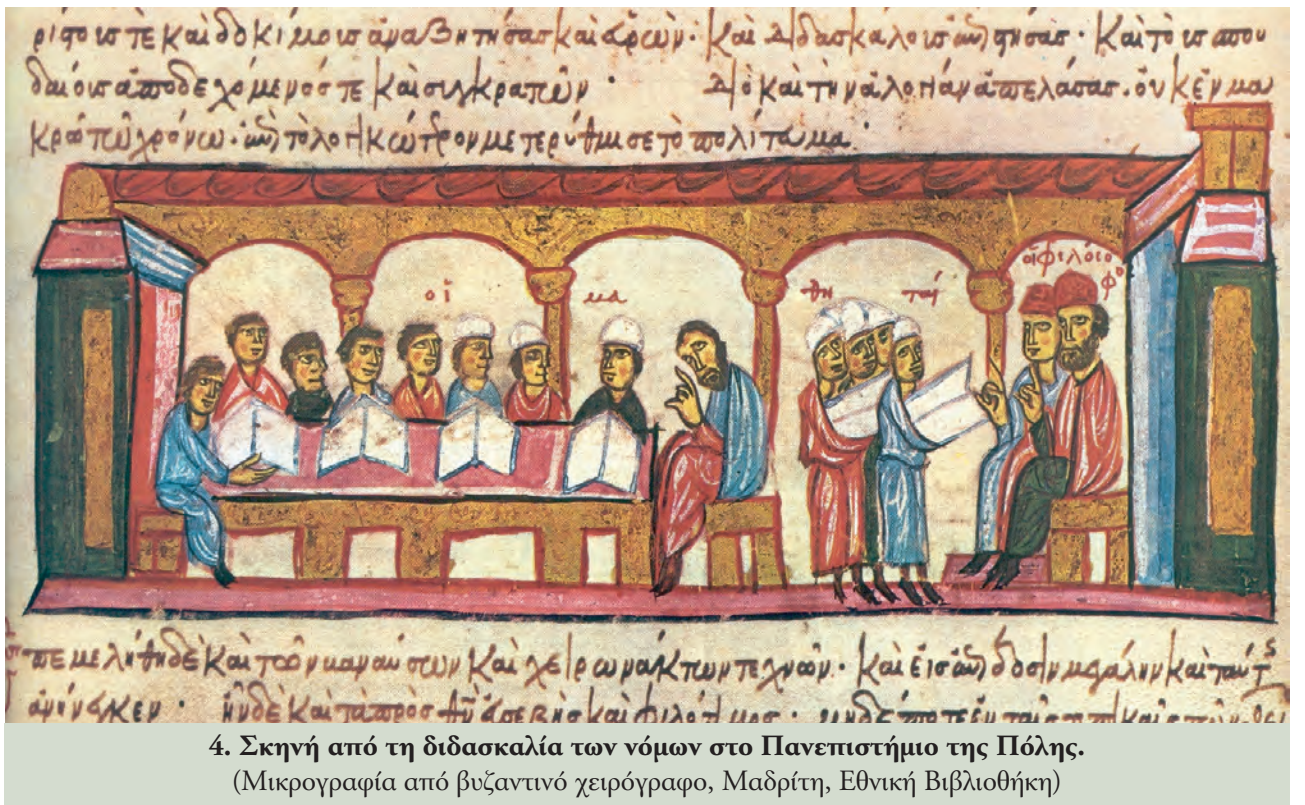 ριτοις τε καὶ δοκίμοις ἀναζητήσας καὶ εὑρών· καὶ διδασκάλοις καὶ τοῖς σπου
δαίοις ἀποδεχόμενός τε καὶ συγκρατῶν· Διὸ καὶ τὴν ἀπελάσας· οὐκ ἐν μα
κρῷ τῷ χρόνῳ· ἐπὶ τὸ μετερύθμισε τὸ
οἱ μα θη ταί
οἱ φιλόσοφοι
καὶ τῶν καὶ χειρωνάκτων τεχνῶν· καὶ εἰς ἐπίδοσιν μεγάλην καὶ
ἀνήνεγκεν· ἦν δὲ καὶ τὰ πρὸς εὐσεβὴς καὶ φιλότιμος·
4. Σκηνή από τη διδασκαλία των νόμων στο Πανεπιστήμιο της Πόλης.
(Μικρογραφία από βυζαντινό χειρόγραφο, Μαδρίτη, Εθνική Βιβλιοθήκη)